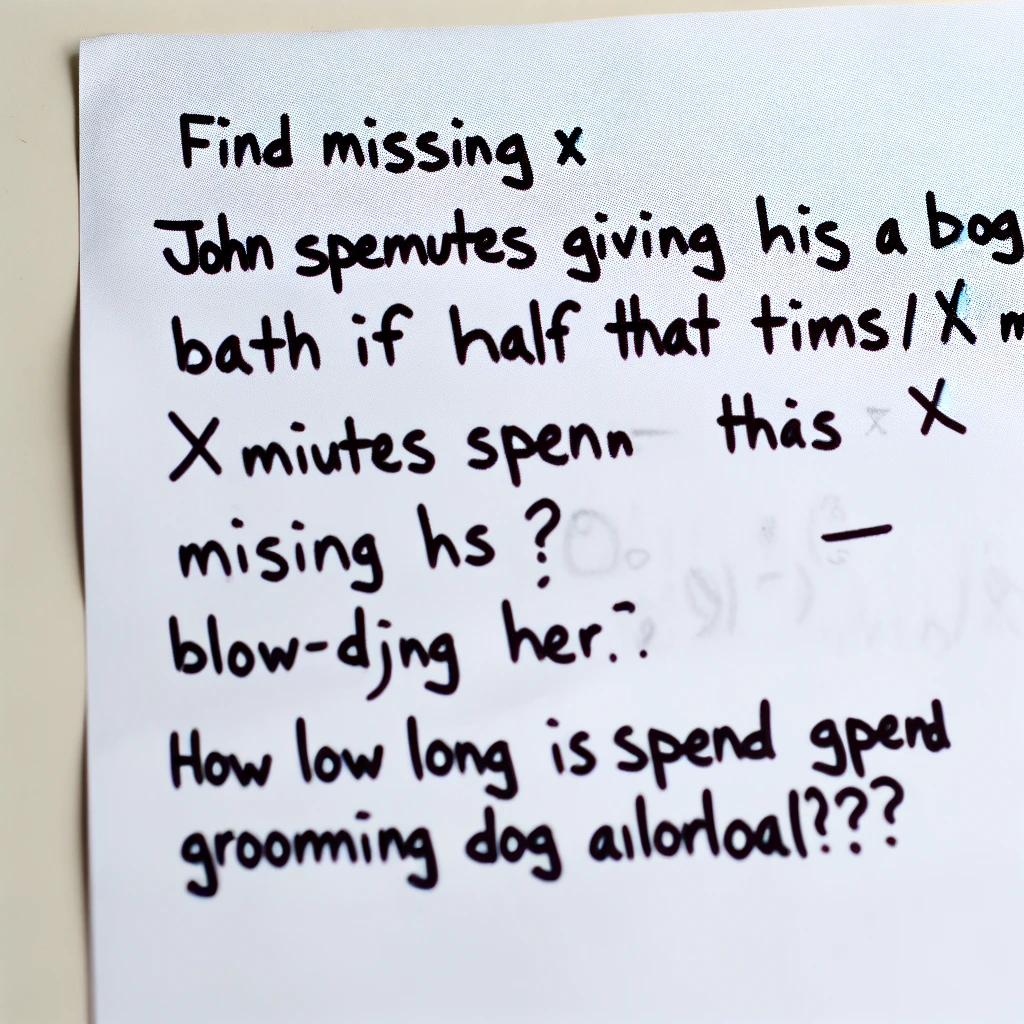 Find missing x
John spemutes giving his a bog
bath if half that tims/X m
X miutes spenn – thás x X
mising hs ? –
blow-djng her
How low long is spend gpend
grooming dog aılorloal???